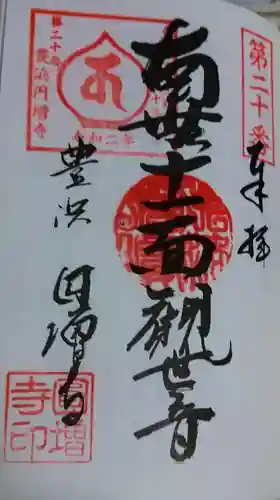 第二十番
奉拝
南無十一面観世音
豊浜 円増寺
豊浜円増寺
令和二年
圓増寺印